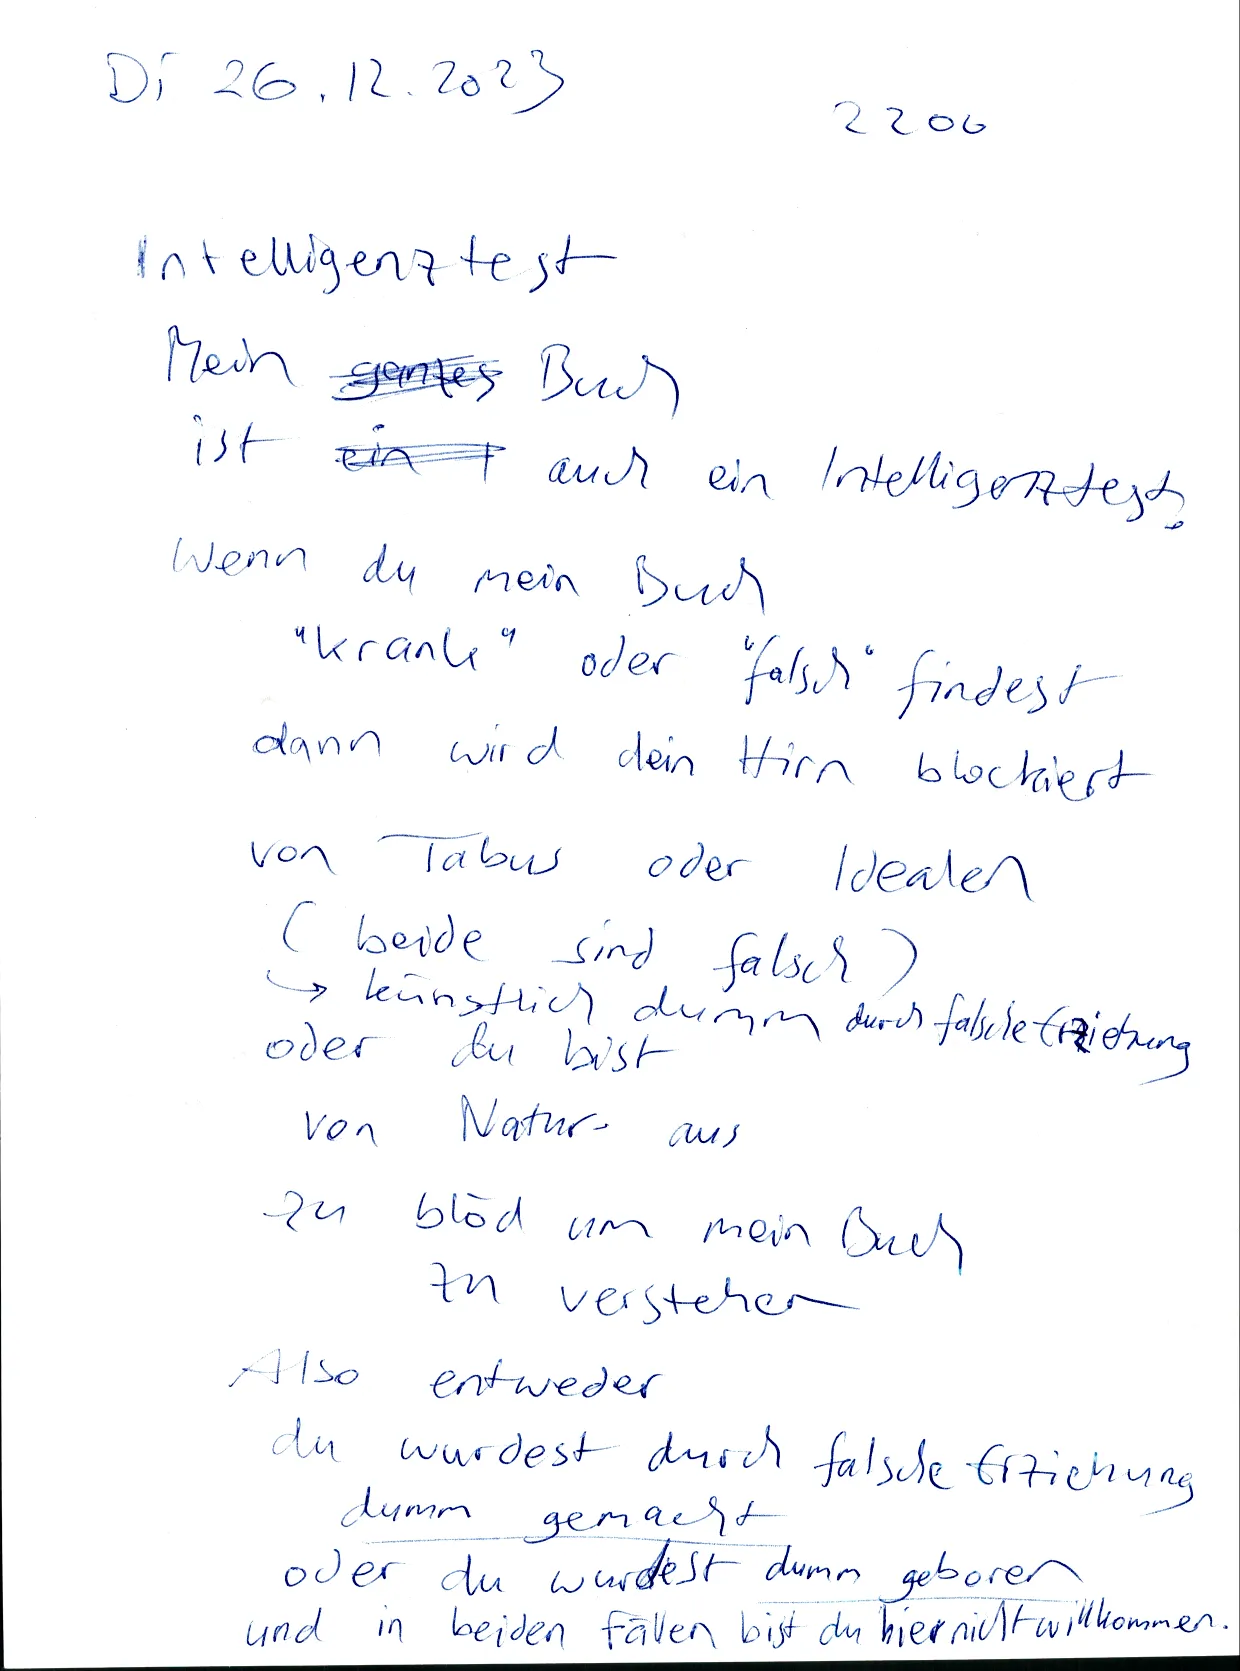 Di 26.12.2023
2200
Intelligenztest
Mein ganzes Buch
ist ein auch ein Intelligenztest.
Wenn du mein Buch
"krank" oder "falsch" findest
dann wird dein Hirn blockiert
von Tabus oder Idealen
(beide sind falsch)
→ künstlich dumm durch falsche Erziehung
oder du bist
von Natur aus
zu blöd um mein Buch
zu verstehen
Also entweder
du wurdest durch falsche Erziehung
dumm gemacht
oder du wurdest dumm geboren
und in beiden Fällen bist du hier nicht willkommen.